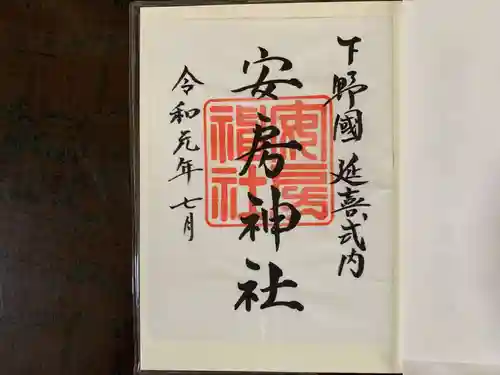 下野國 延喜式内
安房神社
令和元年 七月
安房神社